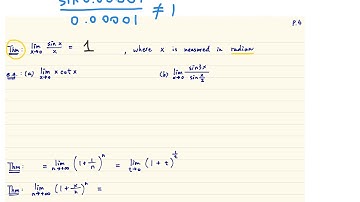 sin 0.00001 / 0.00001 ≠ 1
P.4
Thm: lim x→0 sin x / x = 1, where x is measured in radian
e.g. (a) lim x→0 x cot x (b) lim x→0 sin3x / sin x/2
Thm: = lim n→+∞ (1+1/n)^n = lim t→0 (1+t)^1/t
Thm: lim n→+∞ (1+x/n)^n =